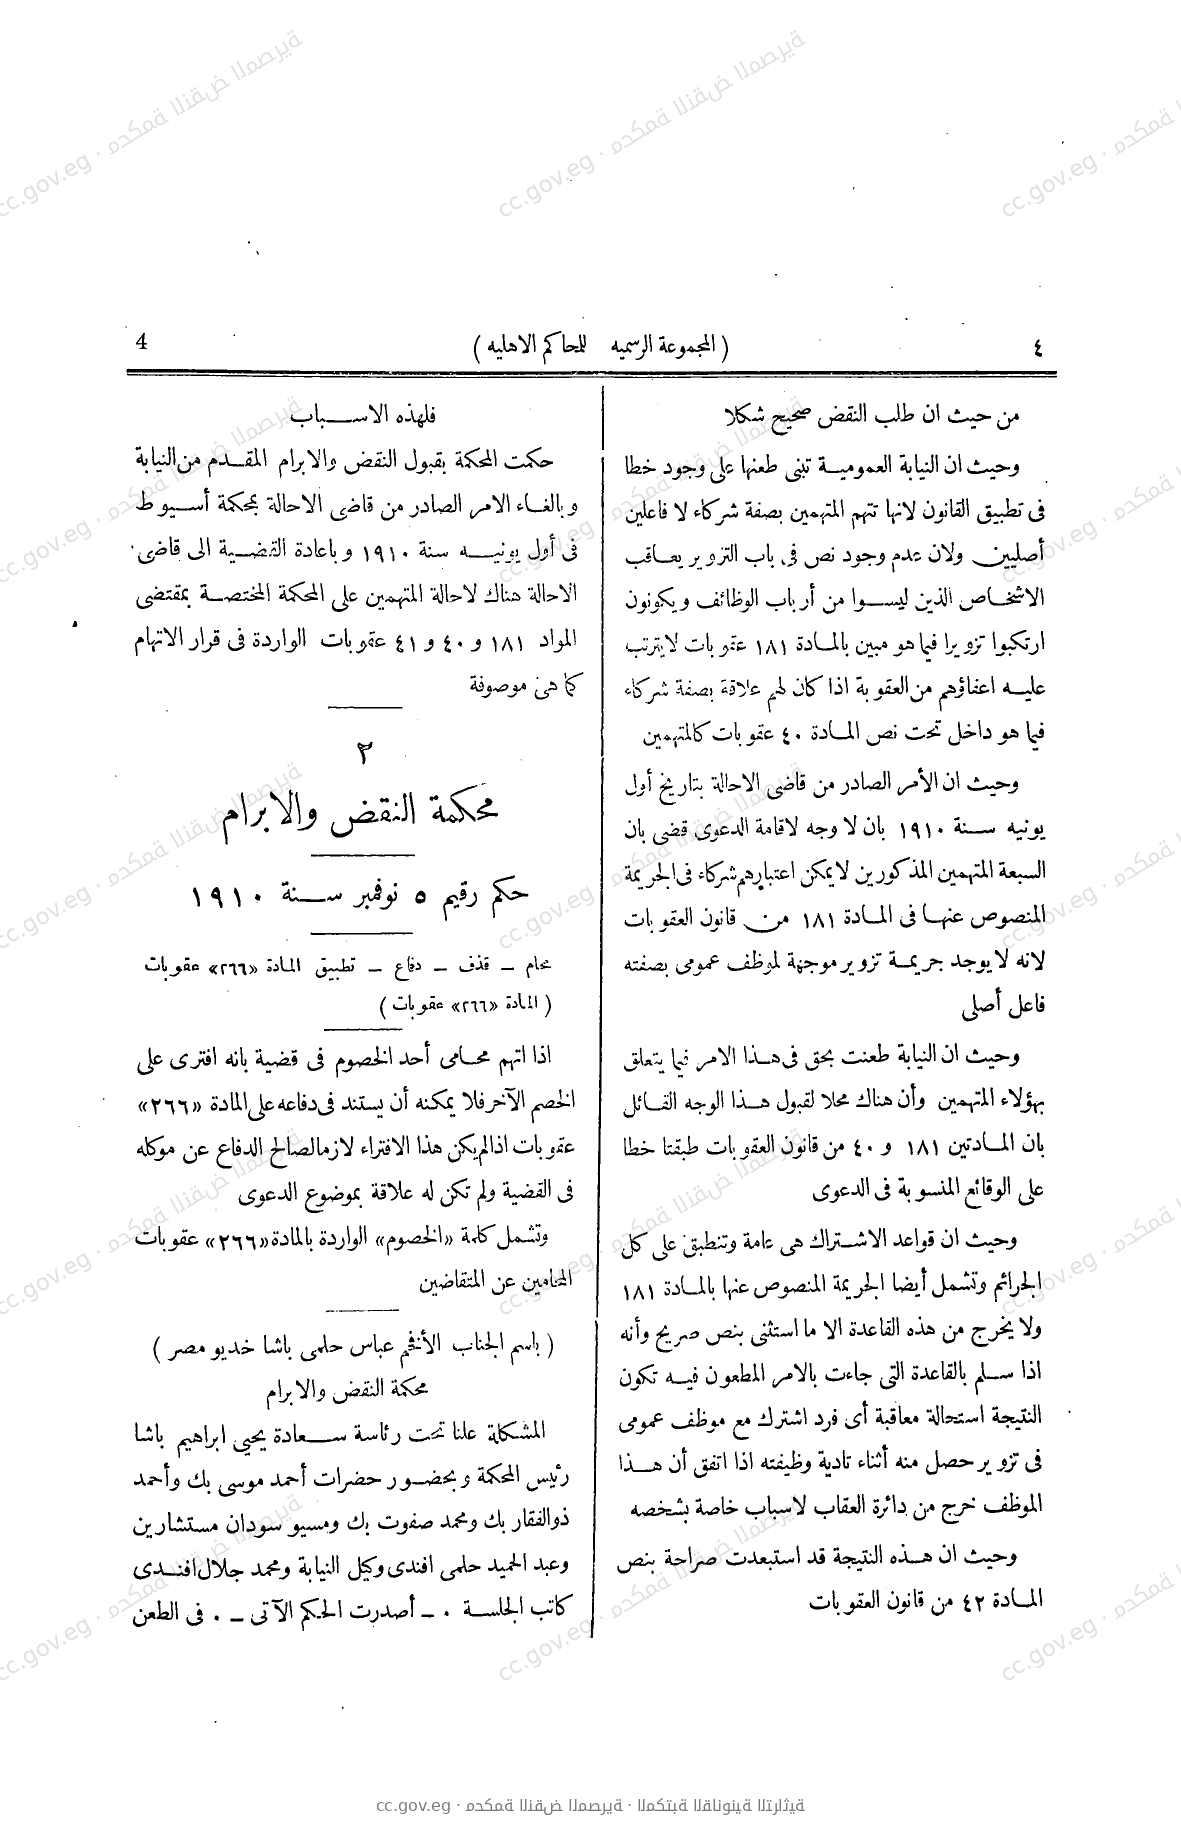 ٤
( المجموعة الرسميه للمحاكم الاهليه )
4
من حيث ان طلب النقض صحيح شكلا
وحيث ان النيابة العموميـة تبنى طعنها على وجود خطا
فى تطبيق القانون لانها تتهم المتهمين بصفة شركاء لا فاعلين
أصليين ولان عدم وجود نص فى باب التزوير يعـاقب
الاشخـاص الذين ليسـوا من أرباب الوظائف ويكونون
ارتكبوا تزويرا فيما هو مبين بالمـادة ١٨١ عقوبات لايترتب
عليـه اعفاؤهم من العقوبة اذا كان لهم علاقة بصفة شركاء
فيما هو داخل تحت نص المـادة ٤٠ عقوبات كالمتهمين
وحيث ان الأمر الصادر من قاضى الاحالة بتاريخ أول
يونيه سـنة ١٩١٠ بان لا وجه لاقامة الدعوى قضى بان
السبعة المتهمين المذكورين لايمكن اعتبارهم شركاء فى الجريمة
المنصوص عنهـا فى المـادة ١٨١ من قانون العقوبات
لانه لا يوجد جريمـة تزوير موجهة لموظف عمومى بصفته
فاعل أصلى
وحيث ان النيابة طعنت بحق فى هـذا الامر فيما يتعلق
بهؤلاء المتهمين وأن هناك محلا لقبول هـذا الوجه القـائل
بان المـادتين ١٨١ و ٤٠ من قانون العقوبات طبقتا خطا
على الوقائع المنسوبة فى الدعوى
وحيث ان قواعد الاشـتراك هى عامة وتنطبق على كل
الجرائم وتشمل أيضا الجريمة المنصوص عنها بالمـادة ١٨١
ولا يخرج من هذه القاعدة الا ما استثنى بنص صريح وأنه
اذا سـلم بالقاعدة التى جاءت بالامر المطعون فيـه تكون
النتيجة استحالة معاقبة أى فرد اشترك مع موظف عمومى
فى تزوير حصل منه أثناء تادية وظيفته اذا اتفق أن هـذا
الموظف خرج من دائرة العقاب لاسباب خاصة بشخصه
وحيث ان هـذه النتيجة قد استبعدت صراحة بنص
المـادة ٤٢ من قانون العقوبات
فلهذه الاسـباب
حكمت المحكمة بقبول النقض والابرام المقـدم من النيابة
وبالغـاء الامر الصادر من قاضى الاحالة بمحكمة أسـيوط
فى أول يونيـه سنة ١٩١٠ وباعادة القضـية الى قاضى
الاحالة هناك لاحالة المتهمين على المحكمة المختصـة بمقتضى
المواد ١٨١ و ٤٠ و ٤١ عقوبات الواردة فى قرار الاتهام
كما هى موصوفة
٢
محكمة النقض والابرام
حكم رقيم ٥ نوفمبر سـنة ١٩١٠
محام ــ قذف ــ دفاع ــ تطبيق المادة «٢٦٦» عقوبات
( المادة «٢٦٦» عقوبات )
اذا اتهم محـامى أحد الخصوم فى قضية بانه افترى على
الخصم الآخر فلا يمكنه أن يستند فى دفاعه على المادة «٢٦٦»
عقوبات اذا لم يكن هذا الافتراء لازما لصالح الدفاع عن موكله
فى القضية ولم تكن له علاقة بموضوع الدعوى
وتشمل كلمة «الخصوم» الواردة بالمادة «٢٦٦» عقوبات
المحامين عن المتقاضين
( باسم الجناب الأفخم عباس حلمى باشا خديو مصر )
محكمة النقض والابرام
المشكلة علنا تحت رئاسة سـعادة يحيى ابراهيم باشا
رئيس المحكمة وبحضور حضرات أحمد موسى بك وأحمد
ذو الفقار بك ومحمد صفوت بك ومسيو سودان مستشارين
وعبد الحميد حلمى افندى وكيل النيابة ومحمد جلال افنـدى
كاتب الجلسـة . ــ أصدرت الحكم الآتى ــ . فى الطعن
cc.gov.eg · محكمة النقض المصرية · المكتبة القانونية التراثية